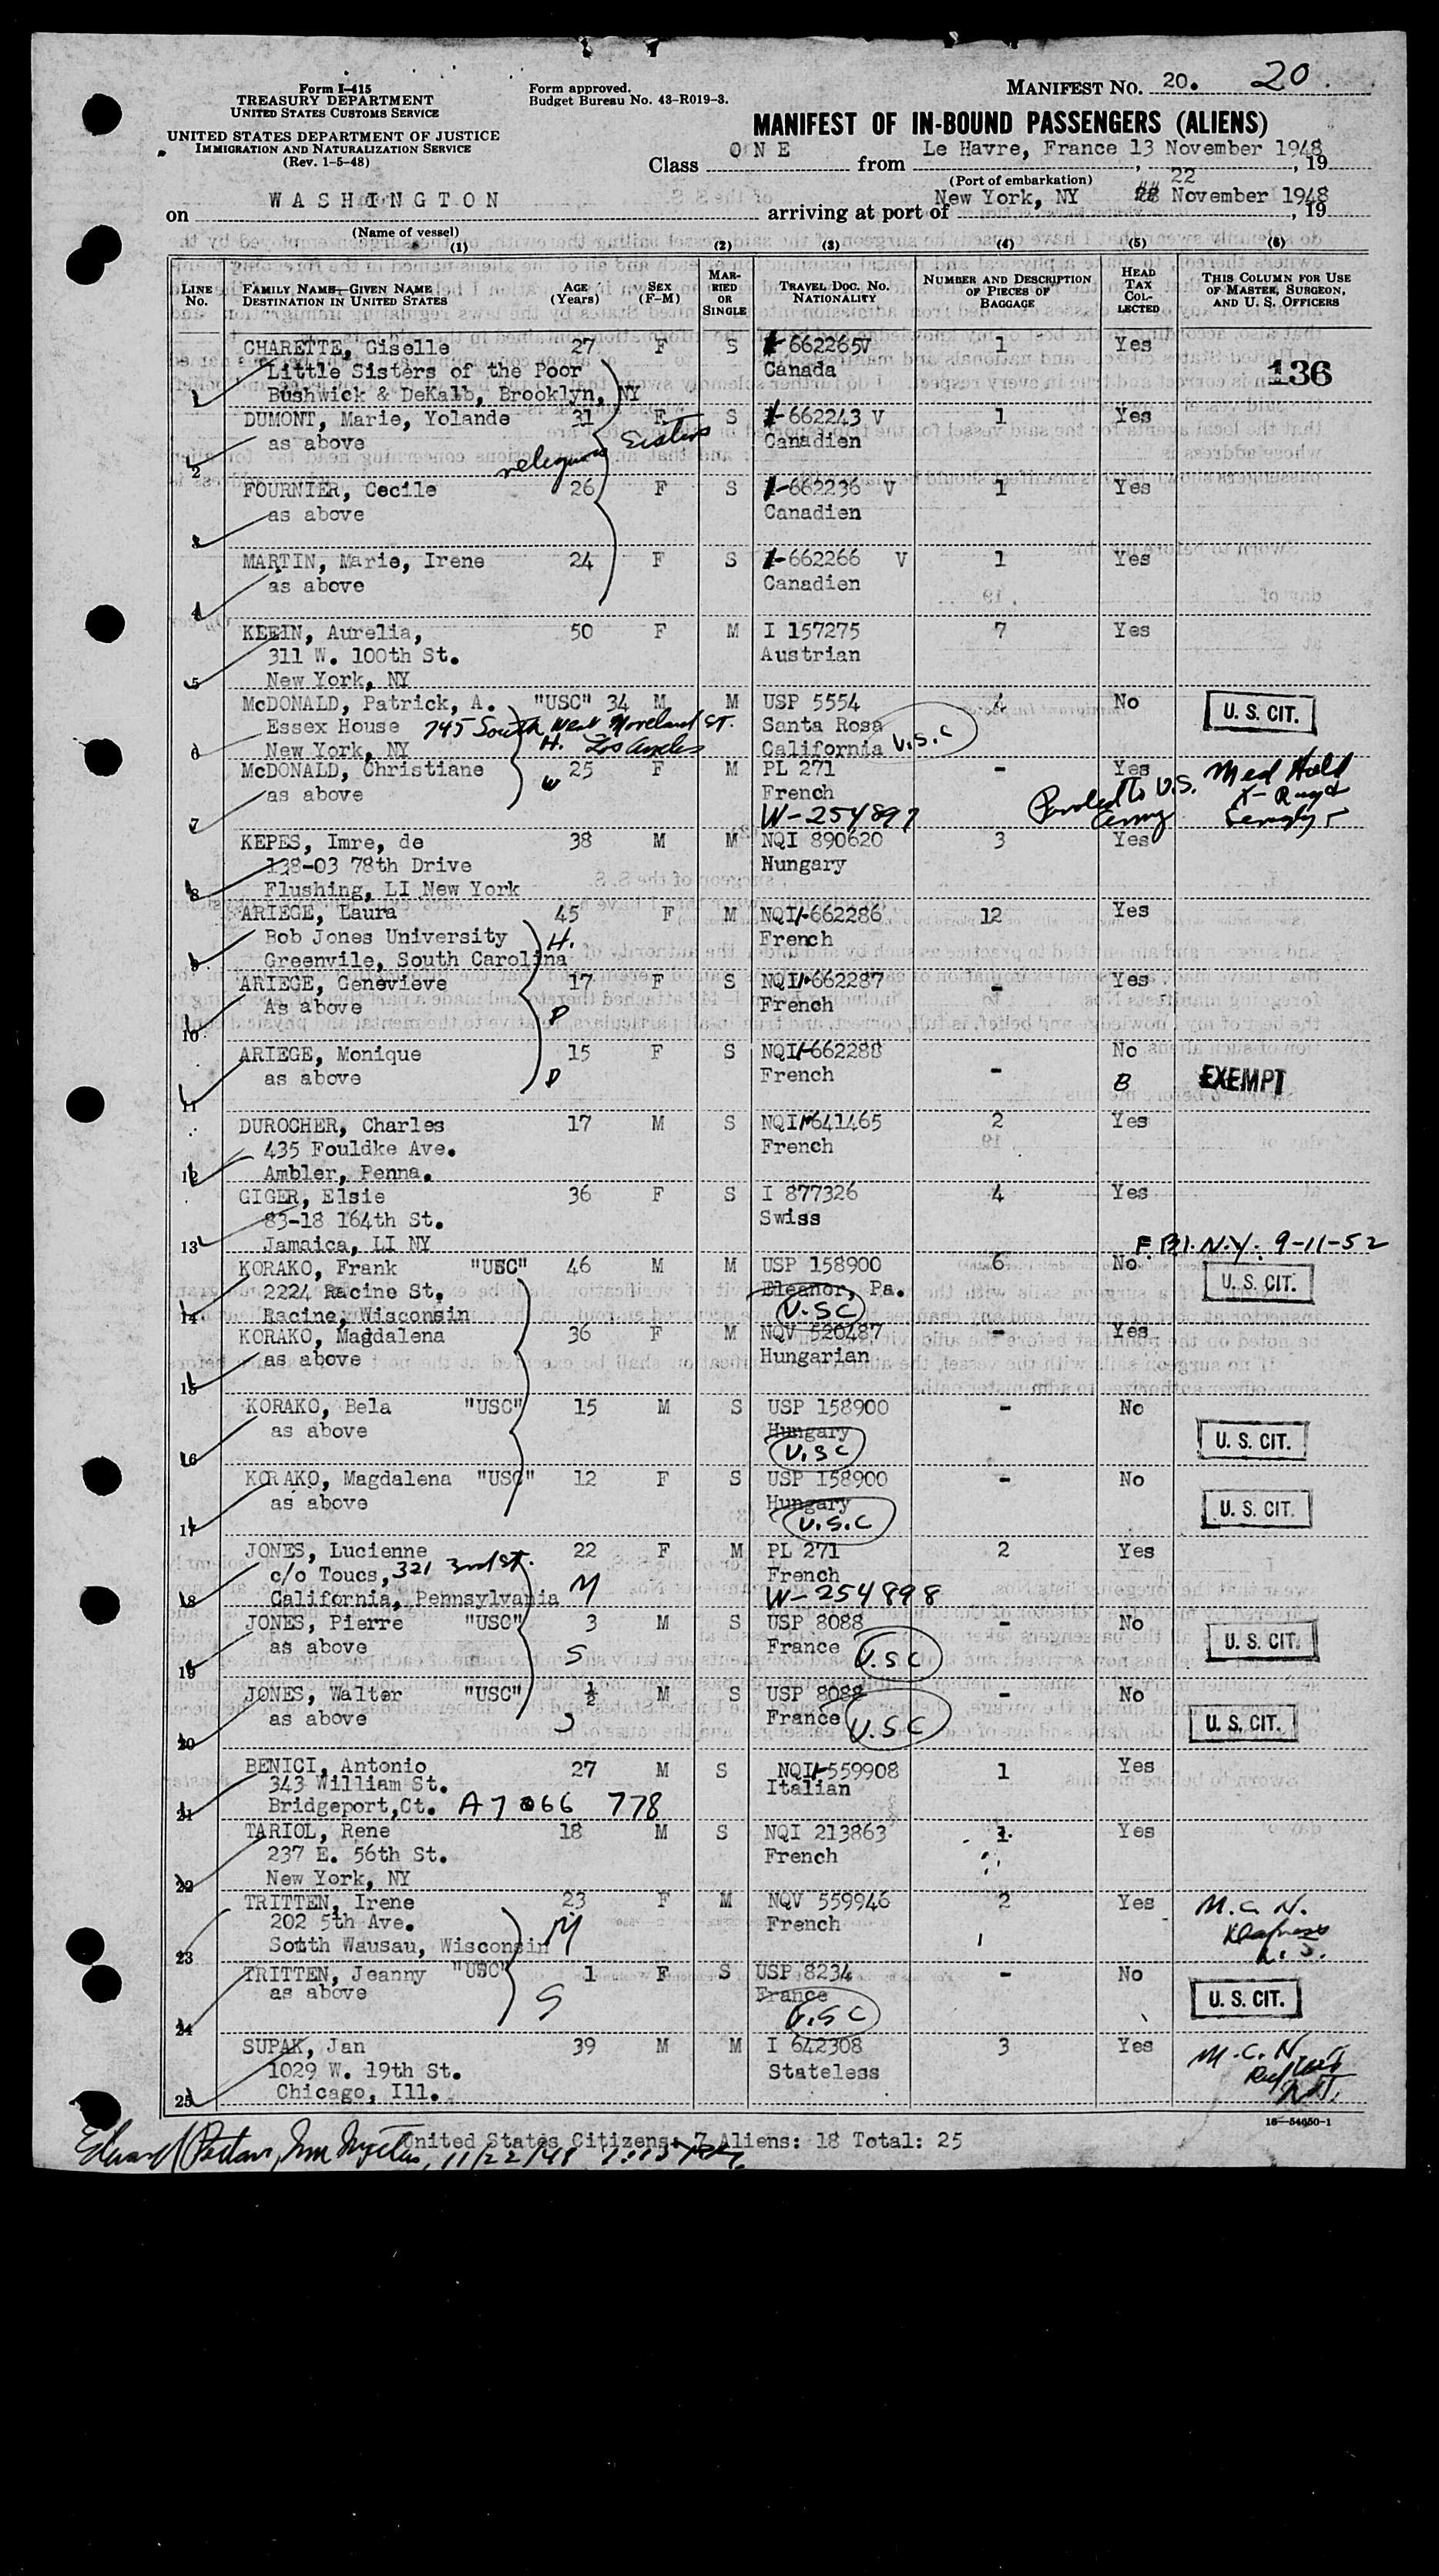 Form I-415
TREASURY DEPARTMENT
UNITED STATES CUSTOMS SERVICE
UNITED STATES DEPARTMENT OF JUSTICE
IMMIGRATION AND NATURALIZATION SERVICE
(Rev. 1-5-48)
Form approved.
Budget Bureau No. 43-R019-3.
MANIFEST NO. 20. 20.
MANIFEST OF IN-BOUND PASSENGERS (ALIENS)
Class ONE from Le Havre, France 13 November 1948, 19
(Port of embarkation)
22
on WASHINGTON arriving at port of New York, NY November 1948, 19
(Name of vessel)
(1) (2) (3) (4) (5) (6)
LINE No. FAMILY NAME—GIVEN NAME DESTINATION IN UNITED STATES AGE (Years) SEX (F-M) MARRIED OR SINGLE TRAVEL DOC. NO. NATIONALITY NUMBER AND DESCRIPTION OF PIECES OF BAGGAGE HEAD TAX COLLECTED THIS COLUMN FOR USE OF MASTER, SURGEON, AND U. S. OFFICERS
CHARETTE, Giselle 27 F S I-662265V 1 Yes
Little Sisters of the Poor Canada 136
1 Bushwick & DeKalb, Brooklyn, NY
DUMONT, Marie, Yolande 31 F S I-662243 V 1 Yes
as above religious Sisters Canadien
2
FOURNIER, Cecile 26 F S I-662236 V 1 Yes
as above Canadien
3
MARTIN, Marie, Irene 24 F S I-662266 V 1 Yes
as above Canadien
4
KLEIN, Aurelia, 50 F M I 157275 7 Yes
311 W. 100th St. Austrian
5 New York, NY
McDONALD, Patrick, A. "USC" 34 M M USP 5554 4 No U. S. CIT.
Essex House 745 South West Moreland St. Santa Rosa
6 New York, NY H. Los Angeles California U.S.C
McDONALD, Christiane W 25 F M PL 271 - Yes Med Hold
as above French Paroled to U.S. X-Ray
7 W-254897 Army
KEPES, Imre, de 38 M M NQI 890620 3 Yes
138-03 78th Drive Hungary
8 Flushing, LI New York
ARIEGE, Laura 45 F M NQI-662286 12 Yes
Bob Jones University H. French
9 Greenvile, South Carolina
ARIEGE, Genevieve 17 F S NQI-662287 - Yes
As above D French
10
ARIEGE, Monique 15 F S NQI-662288 - No
as above D French B EXEMPT
11
DUROCHER, Charles 17 M S NQI-641465 2 Yes
435 Fouldke Ave. French
12 Ambler, Penna.
GIGER, Elsie 36 F S I 877326 4 Yes
83-18 164th St. Swiss
13 Jamaica, LI NY F.B.I. N.Y. 9-11-52
KORAKO, Frank "USC" 46 M M USP 158900 6 No U. S. CIT.
2224 Racine St. Eleanor, Pa.
14 Racine, Wisconsin U.SC
KORAKO, Magdalena 36 F M NQV 520487 - Yes
as above Hungarian
15
KORAKO, Bela "USC" 15 M S USP 158900 - No
as above Hungary U. S. CIT.
16 U.SC
KORAKO, Magdalena "USC" 12 F S USP 158900 - No
as above Hungary U. S. CIT.
17 U.S.C
JONES, Lucienne 22 F M PL 271 2 Yes
c/o Toucs, 321 3rd St. French
18 California, Pennsylvania M W-254898
JONES, Pierre "USC" 3 M S USP 8088 - No
as above S France U.SC U. S. CIT.
19
JONES, Walter "USC" ½ M S USP 8088 - No
as above S France U.SC U. S. CIT.
20
BENICI, Antonio 27 M S NQI-559908 1 Yes
343 William St. Italian
21 Bridgeport,Ct. A7 066 778
TARIOL, Rene 18 M S NQI 213863 1 Yes
237 E. 56th St. French
22 New York, NY
TRITTEN, Irene 23 F M NQV 559946 2 Yes M.C.N.
202 5th Ave. French Deafness
23 South Wausau, Wisconsin M
TRITTEN, Jeanny "USC" 1 F S USP 8234 - No
as above S France U. S. CIT.
24 U.SC
SUPAK, Jan 39 M M I 642308 3 Yes M.C.N.
1029 W. 19th St. Stateless
25 Chicago, Ill.
16—54650-1
United States Citizens: 7 Aliens: 18 Total: 25
11/22/48